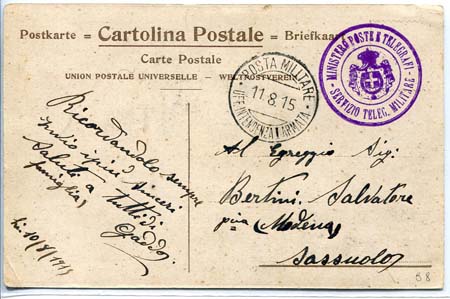 Postkarte = Cartolina Postale = Briefkaart
Carte Postale
UNION POSTALE UNIVERSELLE - WELTPOSTVEREIN
POSTA MILITARE
11.8.15
INTENDENZA I ARMATA
MINISTERO POSTE E TELEGRAFI
- SERVIZIO TELEG. MILITARE -
Ricordandolo sempre
Invio i più sinceri
saluti a tutti di
famiglia
Gaddo
10/8/1915
Al Egreggio Sig:
Bertini Salvatore
(Modena)
Sassuolo
58